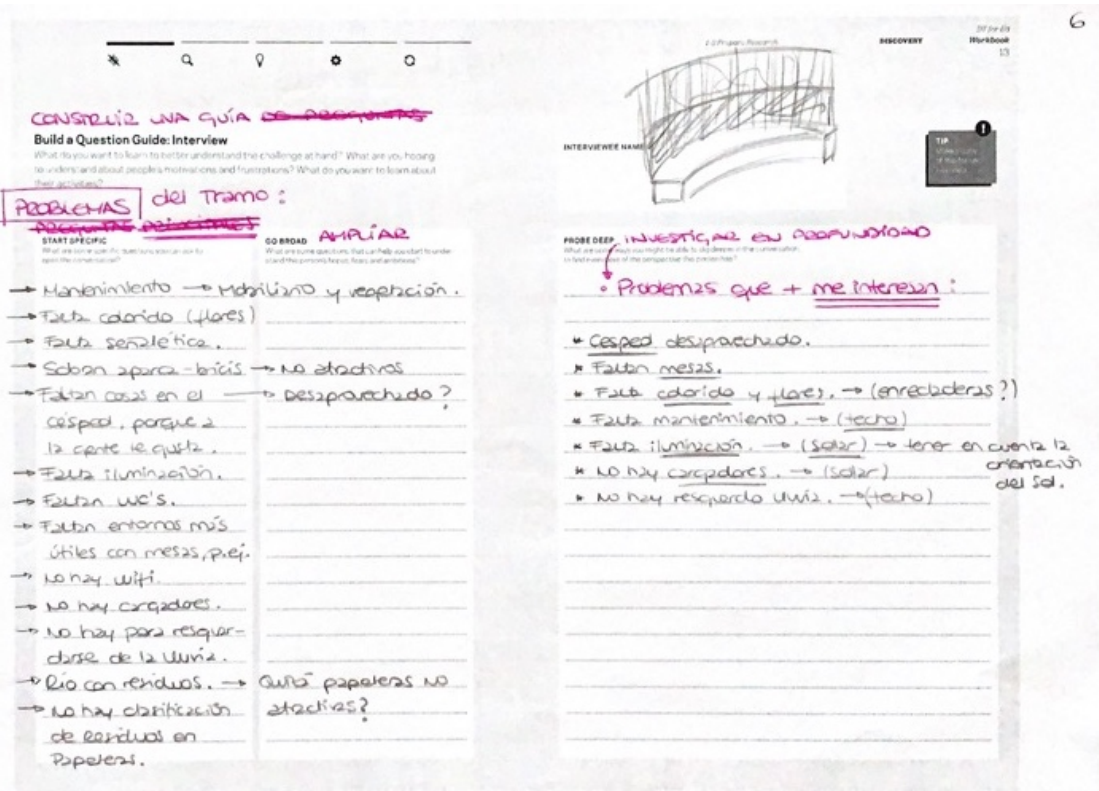 6
DT for Ed
DISCOVERY
Workbook
13
1-2 Prepare Research
CONSTRUIR UNA GUÍA DE PREGUNTAS
Build a Question Guide: Interview
What do you want to learn to better understand the challenge at hand? What are you hoping
to understand about people's motivations and frustrations? What do you want to learn about
their activities?
INTERVIEWEE NAME
TIP
PROBLEMAS del Tramo:
PREGUNTAS PRINCIPALES
START SPECIFIC
What are some specific questions you can ask to
open the conversation?
→ Mantenimiento → Mobiliario y vegetación.
→ Falta colorido (flores)
→ Falta señalética.
→ Soban aparca-bicis → No atractivos
→ Faltan cosas en el → Desaprovechado?
césped, porque a
la gente le gusta.
→ Falta iluminación.
→ Faltan WC's.
→ Faltan entornos más
útiles con mesas, p.ej.
→ No hay wifi.
→ No hay cargadores.
→ No hay para resguar-
darse de la lluvia.
→ Río con residuos. → Quizá papeleras no
atractivas?
→ No hay clasificación
de Residuos en
Papeleras.
GO BROAD AMPLIAR
What are some questions that can help you start to under-
stand this person's hopes, fears and ambitions?
PROBE DEEP INVESTIGAR EN PROFUNDIDAD
• Problemas que + me interesan:
* Cesped desaprovechado.
* Faltan mesas.
* Falta colorido y flores. → (enredaderas?)
* Falta mantenimiento. → (techo)
* Falta iluminación. → (solar) → tener en cuenta la
orientación
del Sol.
* No hay cargadores. → (solar)
* No hay resguardo lluvia. → (techo)